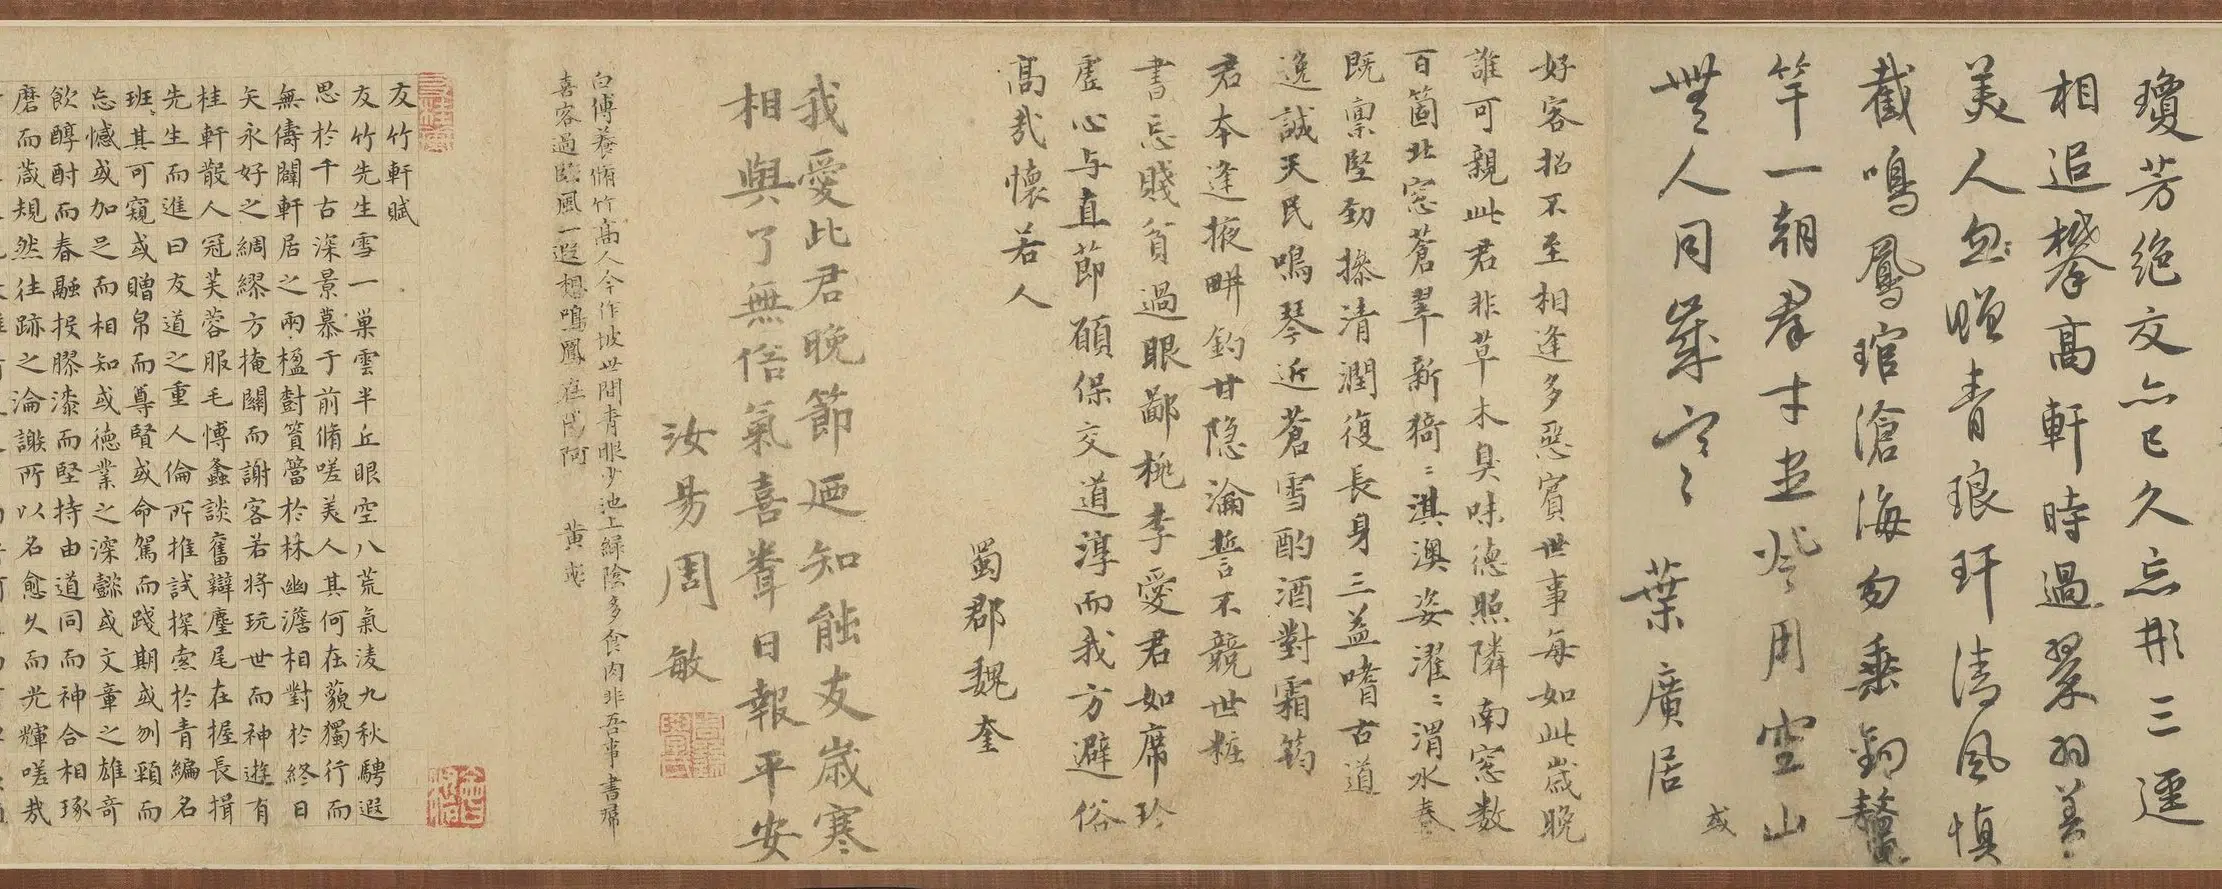 瓊芳絕交亦已久忘形三逕
相追攀高軒時過翠羽蓋
美人忽贈青琅玕清風慎
截鳴鳳琯滄海勿乘釣鰲
竿一朝羣才並登用空山
無人同歲寒
葉廣居
好客招不至相逢多惡賓世事每如此歲晚
誰可親此君非草木臭味德照隣南窓数
百箇北窓蒼翠新猗〻淇澳姿濯〻渭水春
既稟堅勁操清潤復長身三益嗜古道
逸誠天民鳴琴近蒼雪酌酒對霜筠
君本逢掖畊釣甘隱淪誓不競世粧
書忘賤貧過眼鄙桃李愛君如席珍
虛心与直節願保交道淳而我方避俗
高哉懷若人
蜀郡魏奎
我愛此君晚節廼知能友歲寒
相與了無俗氣喜聋日報平安
汝昜周敏
白傅養脩竹高人今作坡世間青眼少池上綠陰多食肉非吾事書
喜客過臨風一遐想鳴鳳在 阿
友竹軒賦
友竹先生雪一巢雲半丘眼空八荒氣淩九秋騁遐
思於千古深景慕于前脩嗟美人其何在藐獨行而
無儔闢軒居之兩楹對篔簹於林幽澹相對於終日
矢永好之綢繆方掩關而謝客若將玩世而神遊有
桂軒散人冠芙蓉服毛慱螽談奮辯麈尾在握長揖
先生而進曰友道之重人倫所推試探索於青編名
班班其可窺或贈帛而尊賢或命駕而踐期或刎頸而
忘憾或加足而相知或德業之深懿或文章之雄奇
飲醇酎而春融投膠漆而堅持由道同而神合相琢
磨而箴規然往跡之淪謝所以名愈久而光輝嗟哉